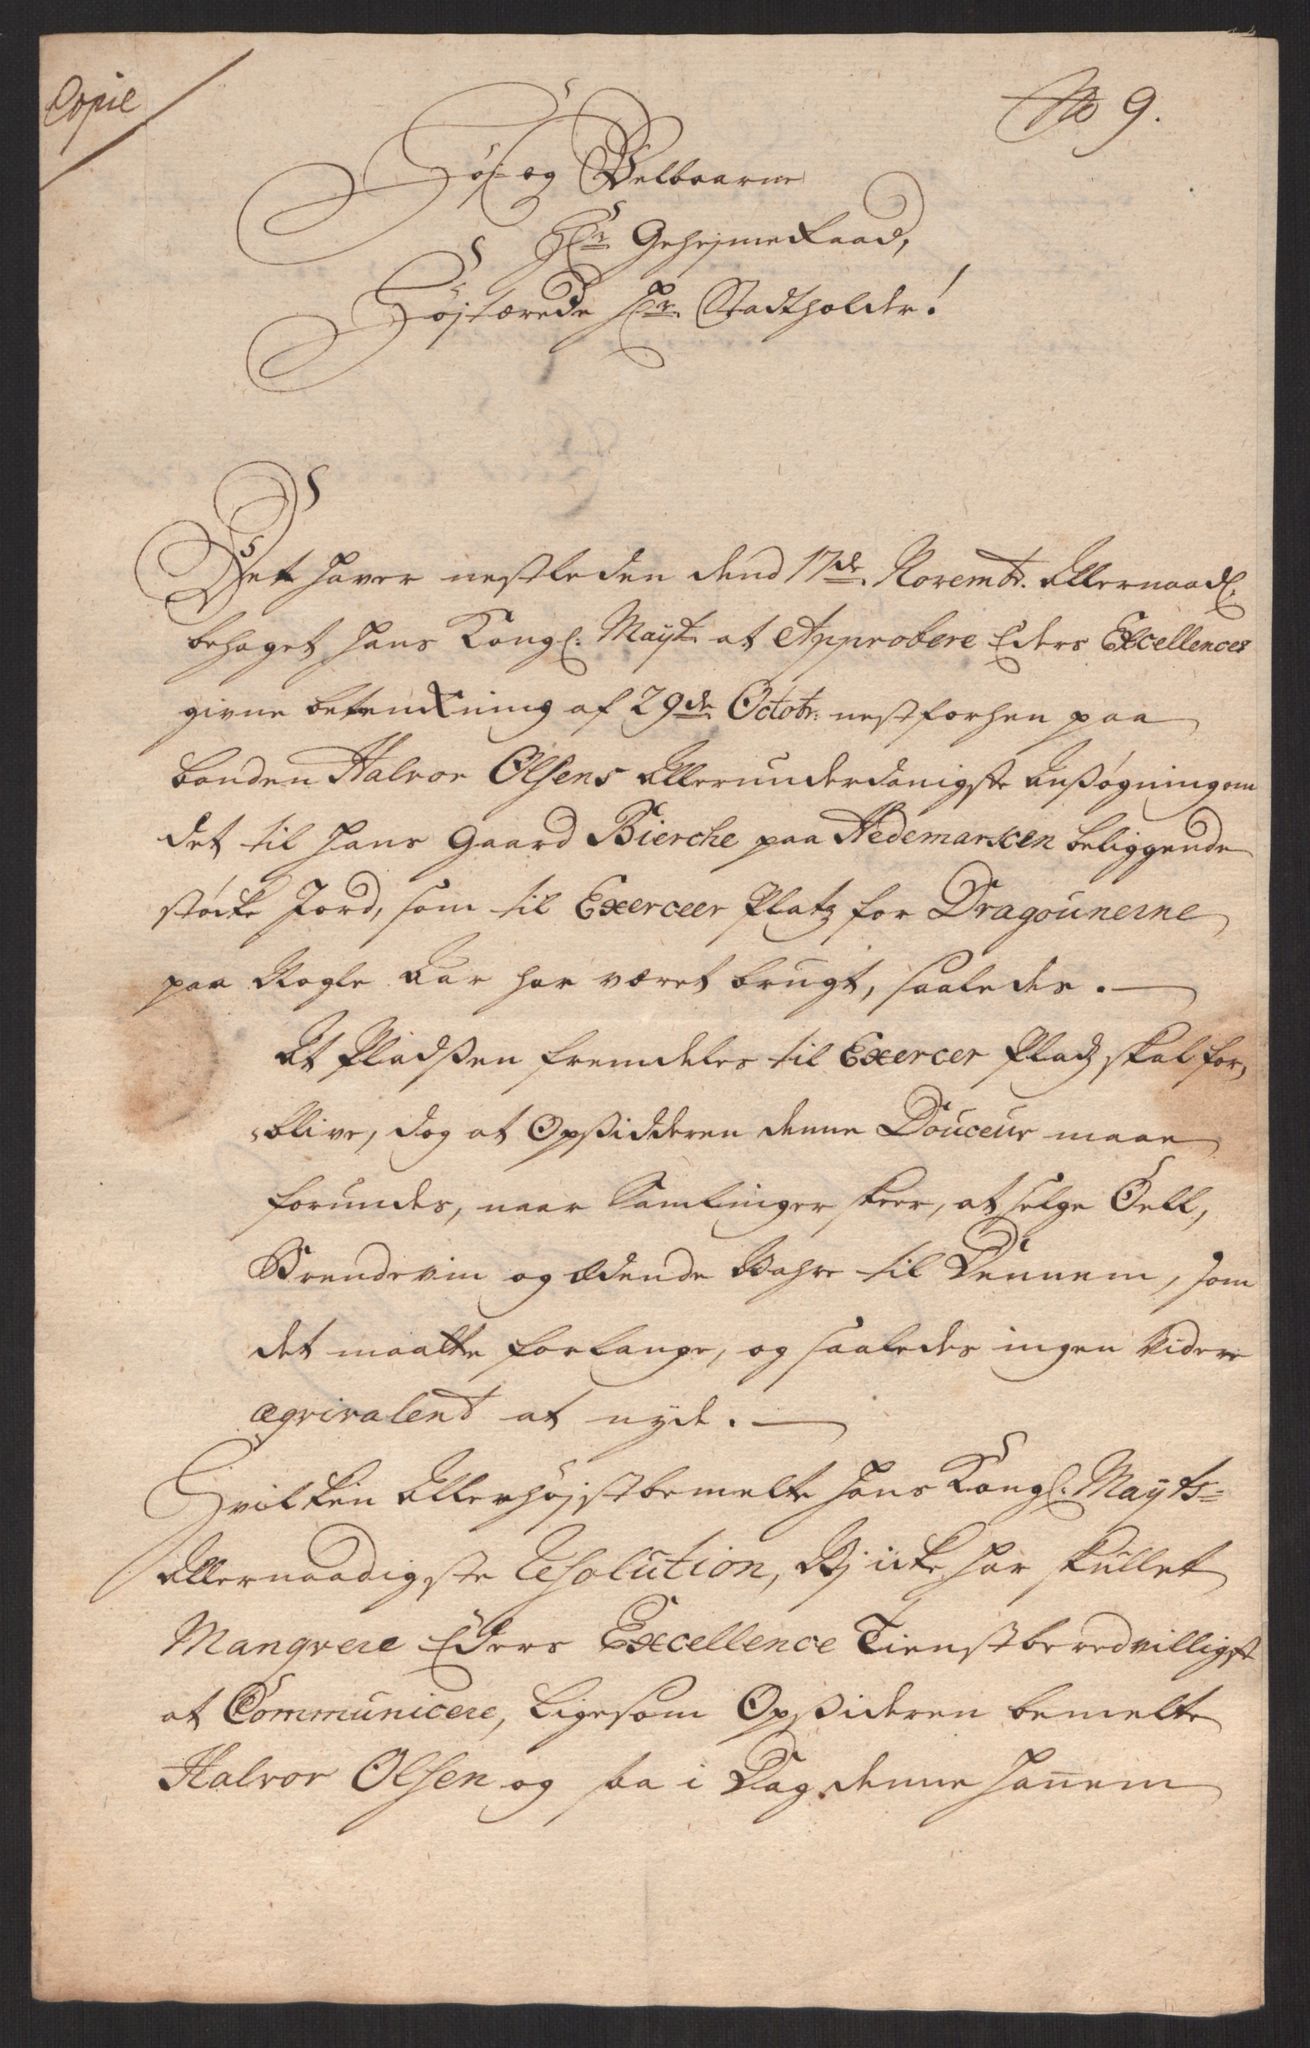 Copie
No 9.
Høj- og Welbaarne
Hr: Gehejmeraad,
Højstærede Hr: Stadtholder!
Det haver nestleden dend 17de Novembr. Allernaadl:
behaget Hans Kongl: Mayt: at Approbere Eders Excellences
givne betænkning af 29de Octobr: nestforhen paa
bonden Halvor Olsens Allerunderdanigste Ansøgning om
det til hans Gaard Bierche paa Hedemarken beliggende
støcke Jord, som til Exerceer Platz for Dragounerne
paa Nogle Aar har været brugt, saaledes.
At Pladsen fremdeles til Exercer Platz skal for-
blive, dog at Opsidderen denne Douceur maae
forundes, naar Samlinger skeer, at selge Øell,
Brendeviin og ædende Wahre til Dennem, som
det maatte forlange, og saaledes ingen Videre
æqvivalent at nyde.
Hvilken Allerhøjstbemelte Hans Kongl: Mayts-
Allernaadigste Resolution, Vj icke har skullet
Manqvere Eders Excellence Tienstberedvilligst
at Communicere, Ligesom Opsideren bemelte
Halvor Olsen og saa i Dag denne hannem